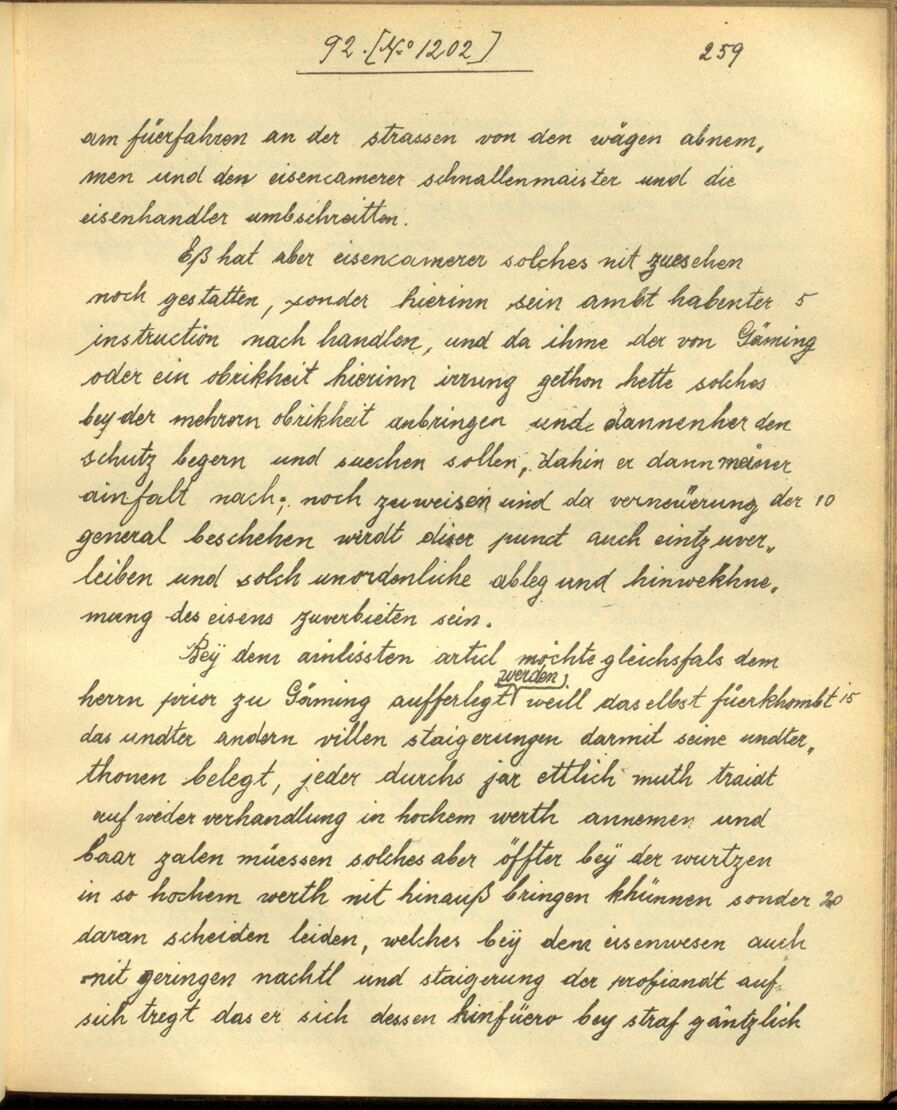 92. [No 1202] 259
am füerfahren an der strassen von den wägen abnem„
men und den eisencamerer schnallenmaister und die
eisenhandler umbschreitten.
Eß hat aber eisencamerer solches nit zuesehen
noch gestatten, sonder hierinn sein ambt habenter 5
instruction nach handlen, und da ihme der von Gäming
oder ein obrikheit hierinn irrung gethon hette solches
bey der mehrorn obrikheit anbringen und dannenher den
schutz begern und suechen sollen, dahin er dann meiner
ainfalt nach; noch zuweisen und da verneüerung der 10
general beschehen wirdt diser punct auch eintzuver„
leiben und solch unordenliche ableg und hinwekhne„
mung des eisens zuverbieten sein.
Beÿ dem ainlissten articl möchte gleichsfals dem
werden,
herrn prior zu Gäming aufferlegt weill daselbst füerkhombt 15
das undter andern villen staigerungen darmit seine undter„
thonen belegt, jeder durchs jar ettlich muth traidt
auf weder verhandlung in hochem werth annemen und
baar zalen müessen solches aber öffter beÿ der wurtzen
in so hochem werth nit hinauß bringen khünnen sonder 20
daran scheiden leiden, welches beÿ dem eisenwesen auch
nit geringen nachtl und staigerung der profiandt auf
sich tregt das er sich dessen hinfüero bey straf gäntzlich